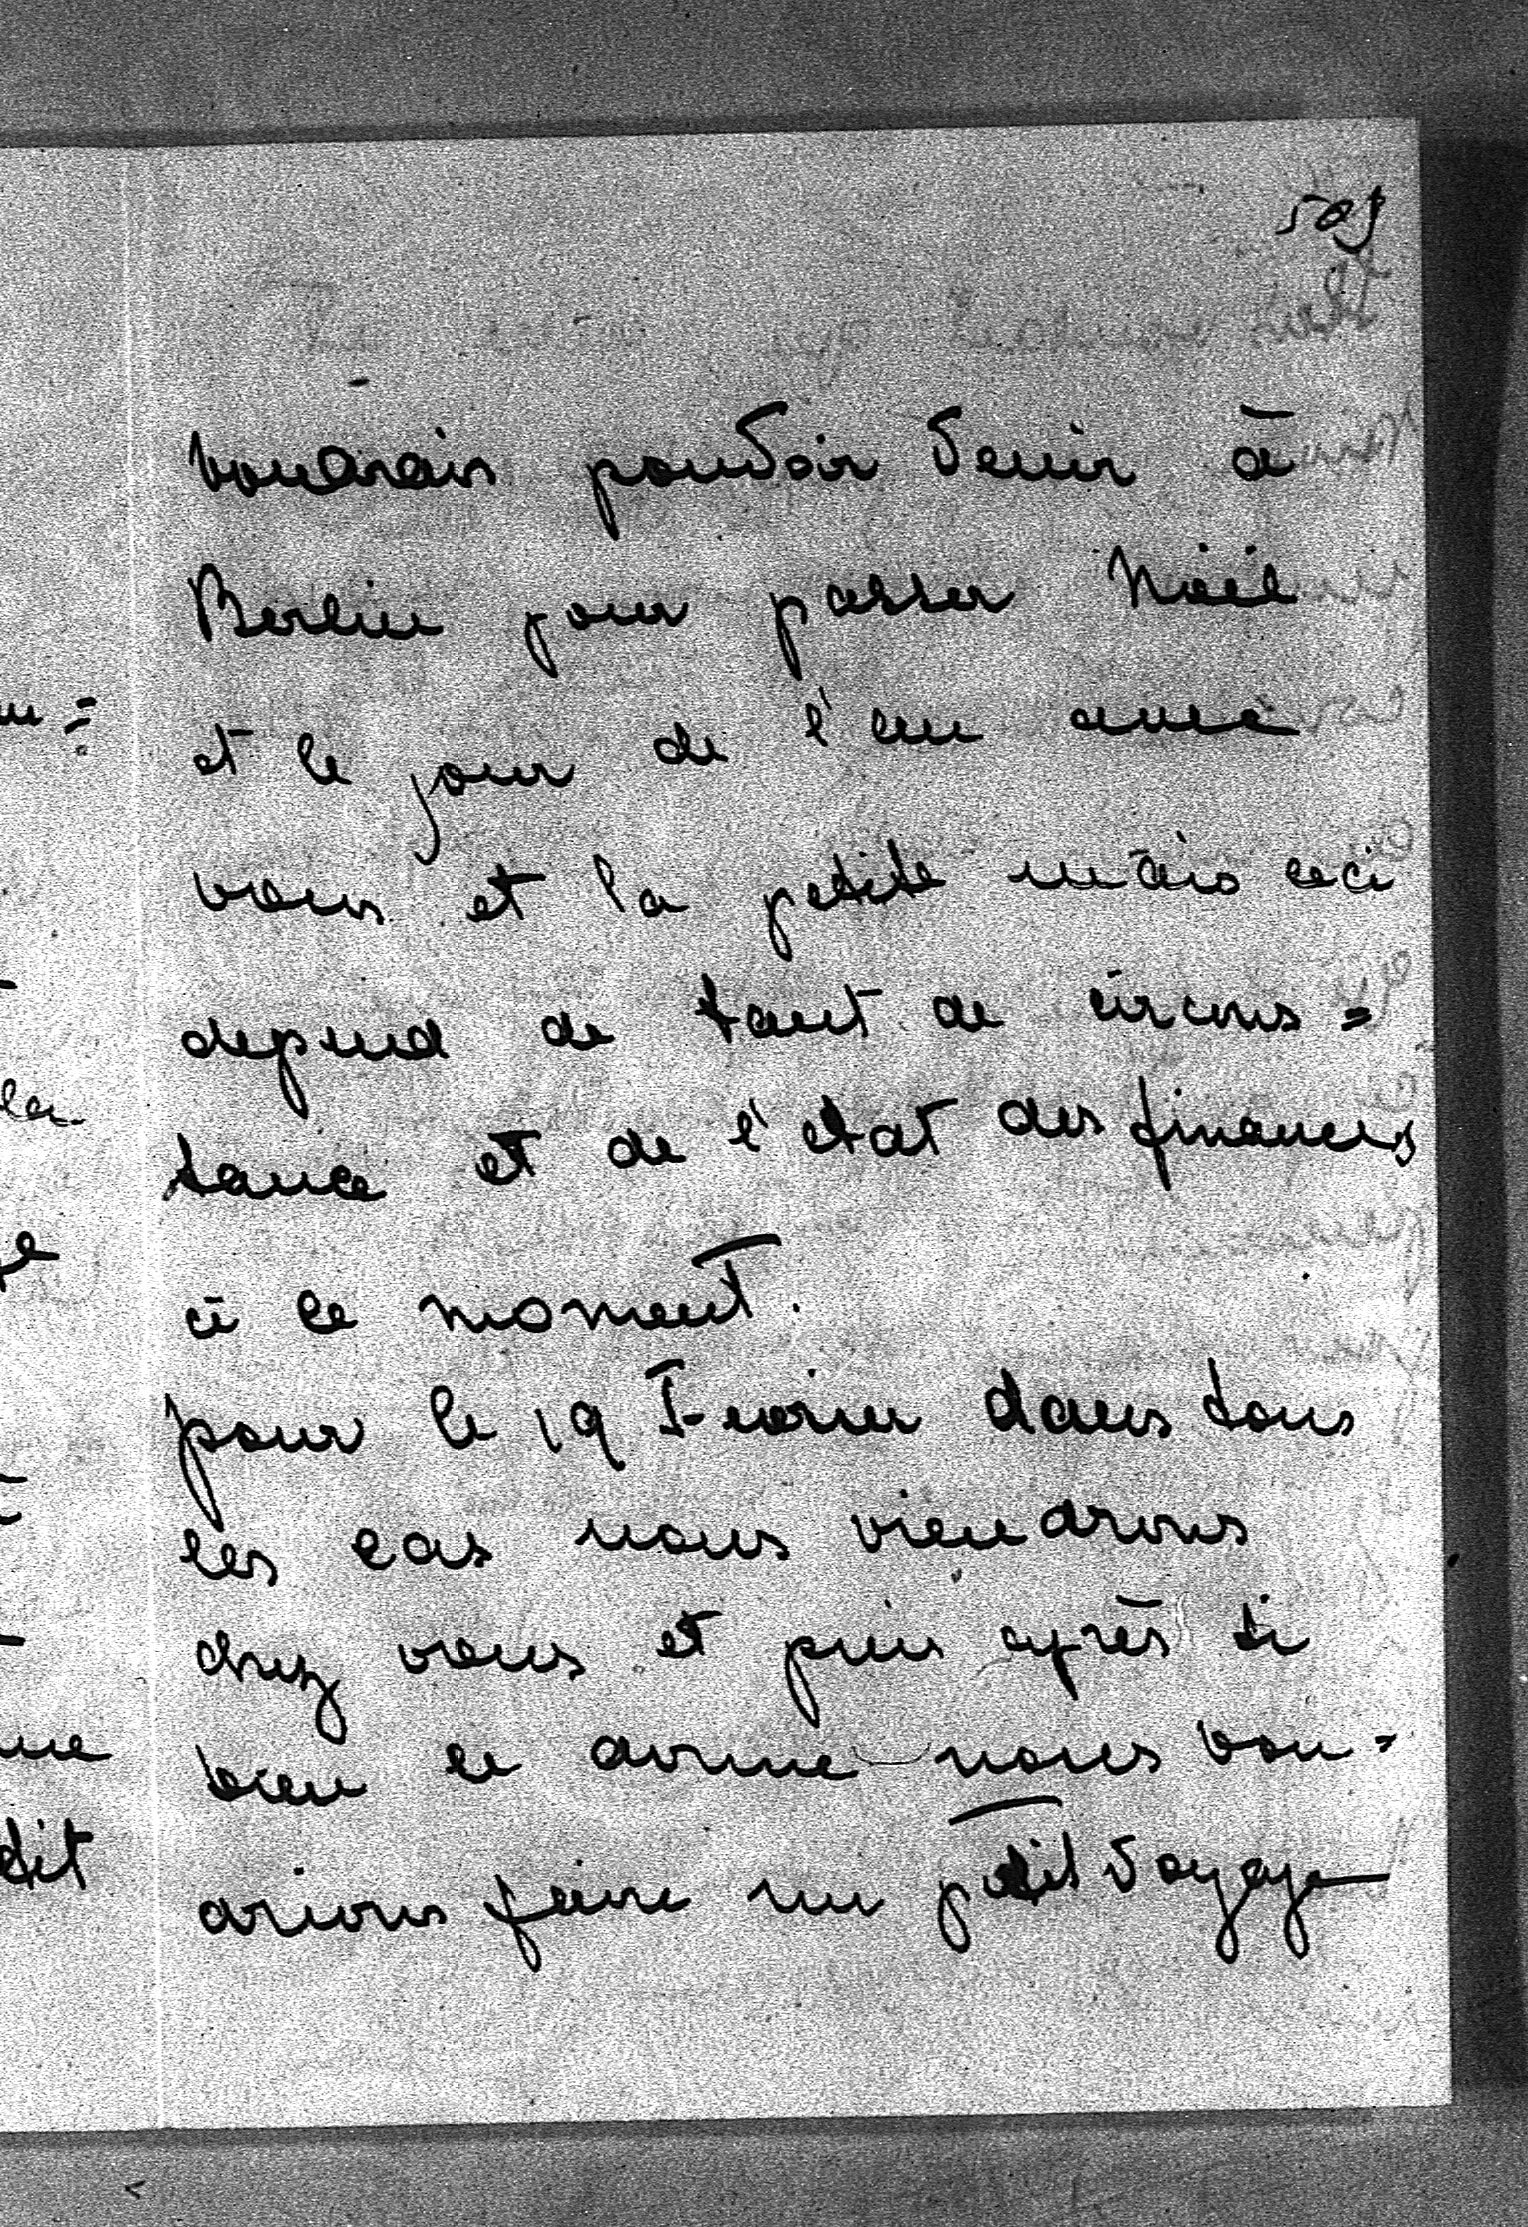 505
voudrais pouvoir venir à
Berlin pour passer Noël
et le jour de l'an avec
vous et la petite mais ceci
depend de tant de circons=
tance et de l'etat des finances
à ce moment.
pour le 19 Fevrier dans tous
les cas nous viendrons
chez vous et puis après si
bien ce donne nous vou=
drions faire un petit voyage
dit